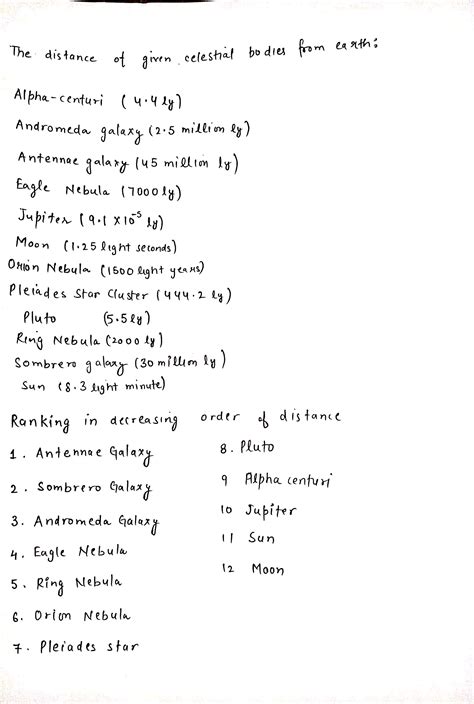 The distance of given celestial bodies from earth:
Alpha-centuri (4.4 ly)
Andromeda galaxy (2.5 million ly)
Antennae galaxy (45 million ly)
Eagle Nebula (7000 ly)
Jupiter (9.1 X10⁻⁵ ly)
Moon (1.25 light seconds)
Orion Nebula (1500 light years)
Pleiades Star Cluster (444.2 ly)
Pluto (5.5 ly)
Ring Nebula (2000 ly)
Sombrero galaxy (30 million ly)
Sun (8.3 light minute)
Ranking in decreasing order of distance
1. Antennae Galaxy
2. Sombrero Galaxy
3. Andromeda Galaxy
4. Eagle Nebula
5. Ring Nebula
6. Orion Nebula
7. Pleiades star
8. Pluto
9 Alpha centuri
10 Jupiter
11 Sun
12 Moon